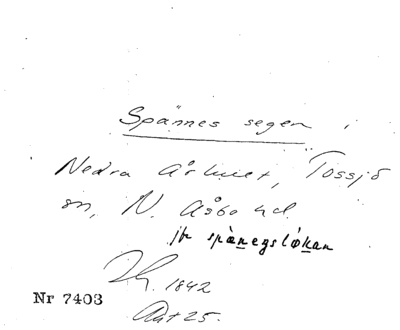 Spännes segen i
Nedra Århuset, Tossjö
sn, N. Åsbo hd.
jfr spànegsløkan
1842
Nr 7403
Ant 25.